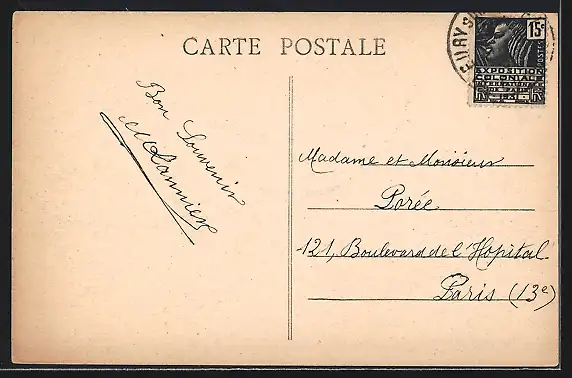 CARTE POSTALE
15c
POSTES
EXPOSITION
COLONIALE
INTERNATIONALE
PARIS 1931
Bon Souvenir
Madame et Monsieur
Porée
121, Boulevard de l'Hopital
Paris (13e)